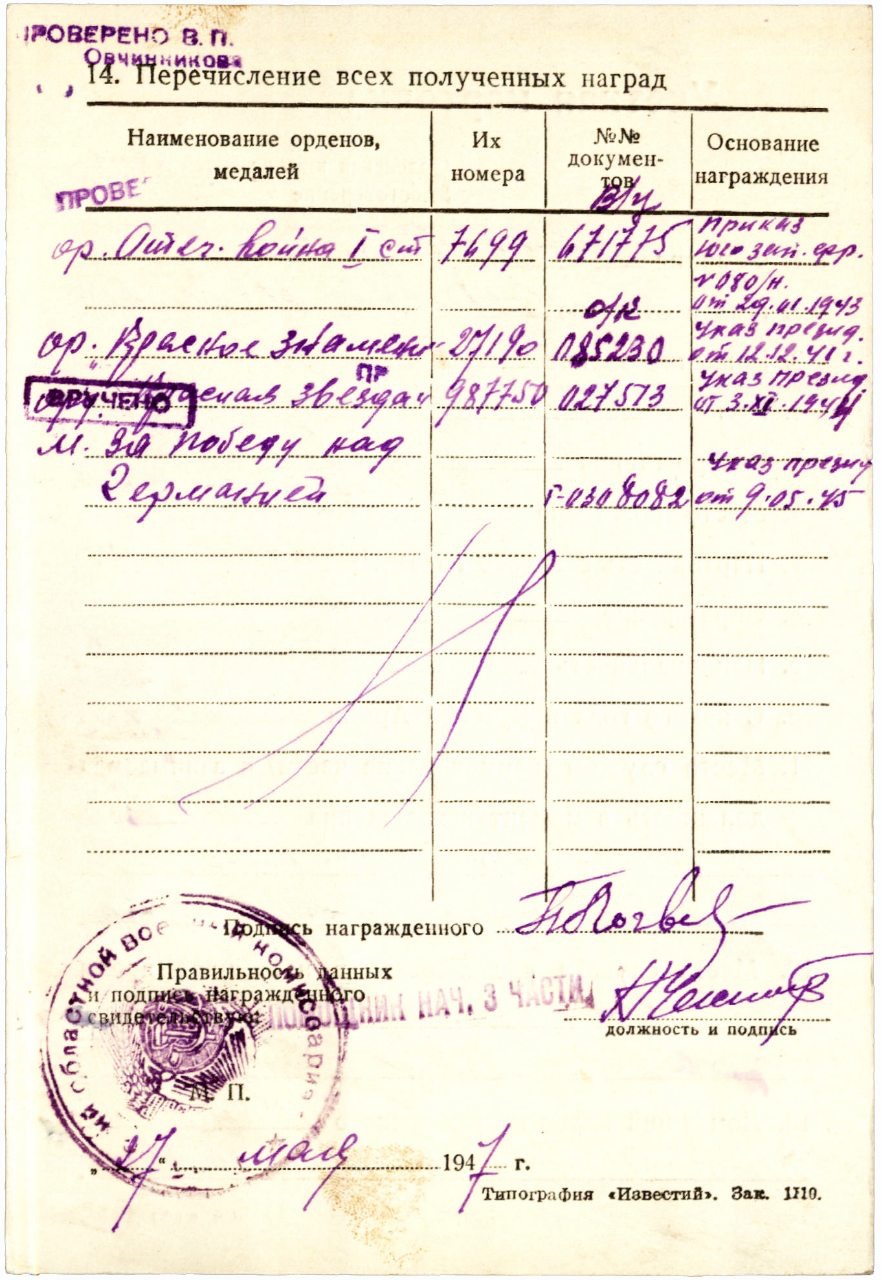 ПРОВЕРЕНО В. П.
Овчинникова
14. Перечисление всех полученных наград
Наименование орденов,
медалей
Их
номера
№№
докумен-
тов
Основание
награждения
ПРОВЕ
в/ч
ор. Отеч. война I ст 7699 671775 Приказ
Юго зап. фр.
№ 080/н.
от 29.01.1943
о/к
ор. Красное Знамени 27190 085230 Указ презид.
от 12.12.41 г.
ПР
ВРУЧЕНО
Красная звезда 987750 027513 Указ презид
от 3.XI.1944
м. За победу над
Германией Г-0308082 Указ презид
от 9.05.45
Подпись награжденного
Правильность данных
и подпись награжденного
свидетельствую:
ПОМОЩНИК НАЧ. 3 ЧАСТИ
должность и подпись
областной военный комиссариат
М. П.
„ 27 “ мая 1947 г.
Типография «Известий». Зак. 1110.